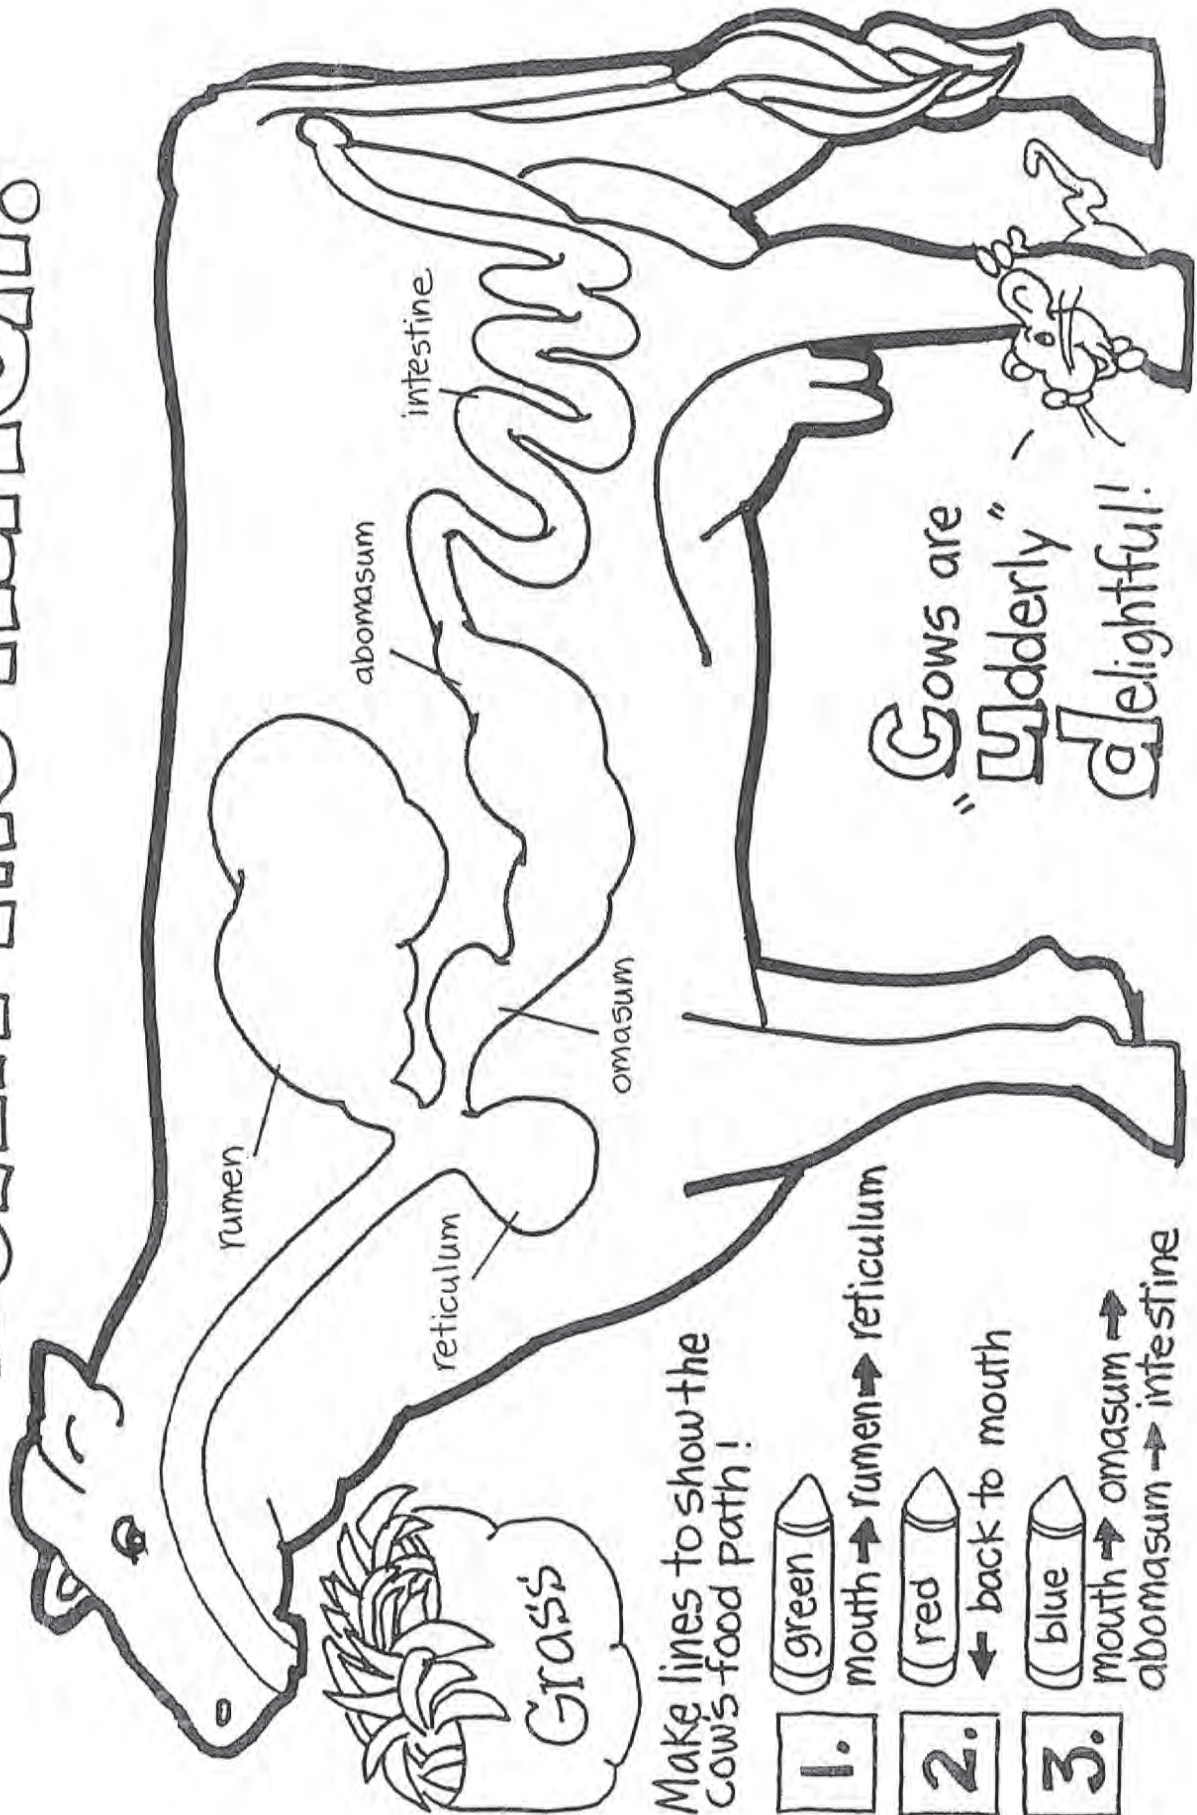 rumen
abomasum
intestine
reticulum
omasum
Grass
Make lines to show the
cow's food path!
1. green
mouth → rumen → reticulum
2. red
← back to mouth
3. blue
mouth → omasum →
abomasum → intestine
Cows are
"Udderly"
delightful!